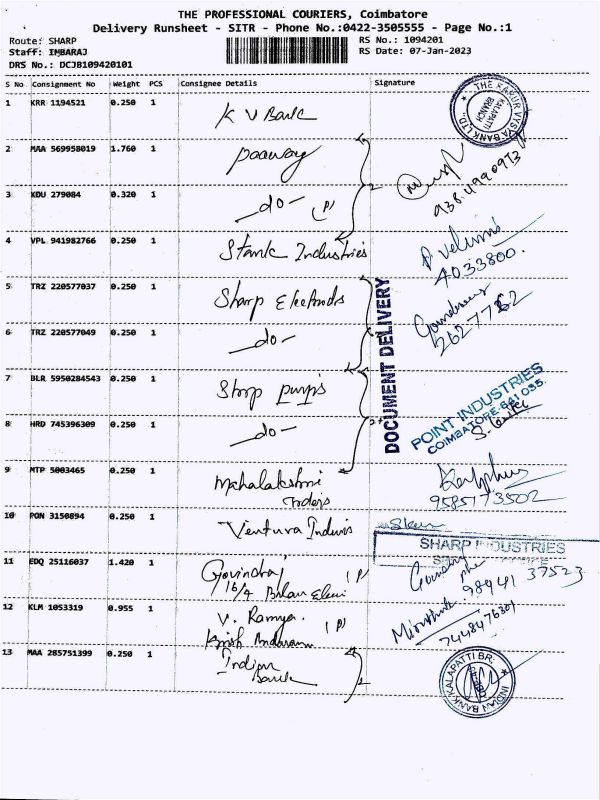 THE PROFESSIONAL COURIERS, Coimbatore
Delivery Runsheet - SITR - Phone No.:0422-3505555 - Page No.:1
Route: SHARP
RS No.: 1094201
Staff: IMBARAJ
RS Date: 07-Jan-2023
DRS No.: DCJB109420101
S No Consignment No Weight PCS Consignee Details Signature
1 KRR 1194521 0.250 1 K V Bank
THE KARUR VYSYA BANK LTD. KALAPATTI BRANCH
2 MAA 569958019 1.760 1
9384990973
3 KDU 279084 0.320 1 -do- (P)
4 VPL 941982766 0.250 1 Stank Industries
P Velumi
4033800.
5 TRZ 220577037 0.250 1 Sharp Electrods
2627762
6 TRZ 220577049 0.250 1 -do-
DOCUMENT DELIVERY
7 BLR 5950284543 0.250 1 Sharp pumps
POINT INDUSTRIES
COIMBATORE-641 035.
8 HRD 745396309 0.250 1 -do-
9 MTP 5003465 0.250 1 Mahalakshmi
9585173502
10 PON 3150894 0.250 1 Ventura
SHARP INDUSTRIES
11 EDQ 25116037 1.420 1 Govindraj (P)
16/4
98941 37523
12 KLM 1053319 0.955 1 V. Ramya (P)
7448476301
13 MAA 285751399 0.250 1 Indian
Bank
INDIAN BANK KALAPATTI BR.